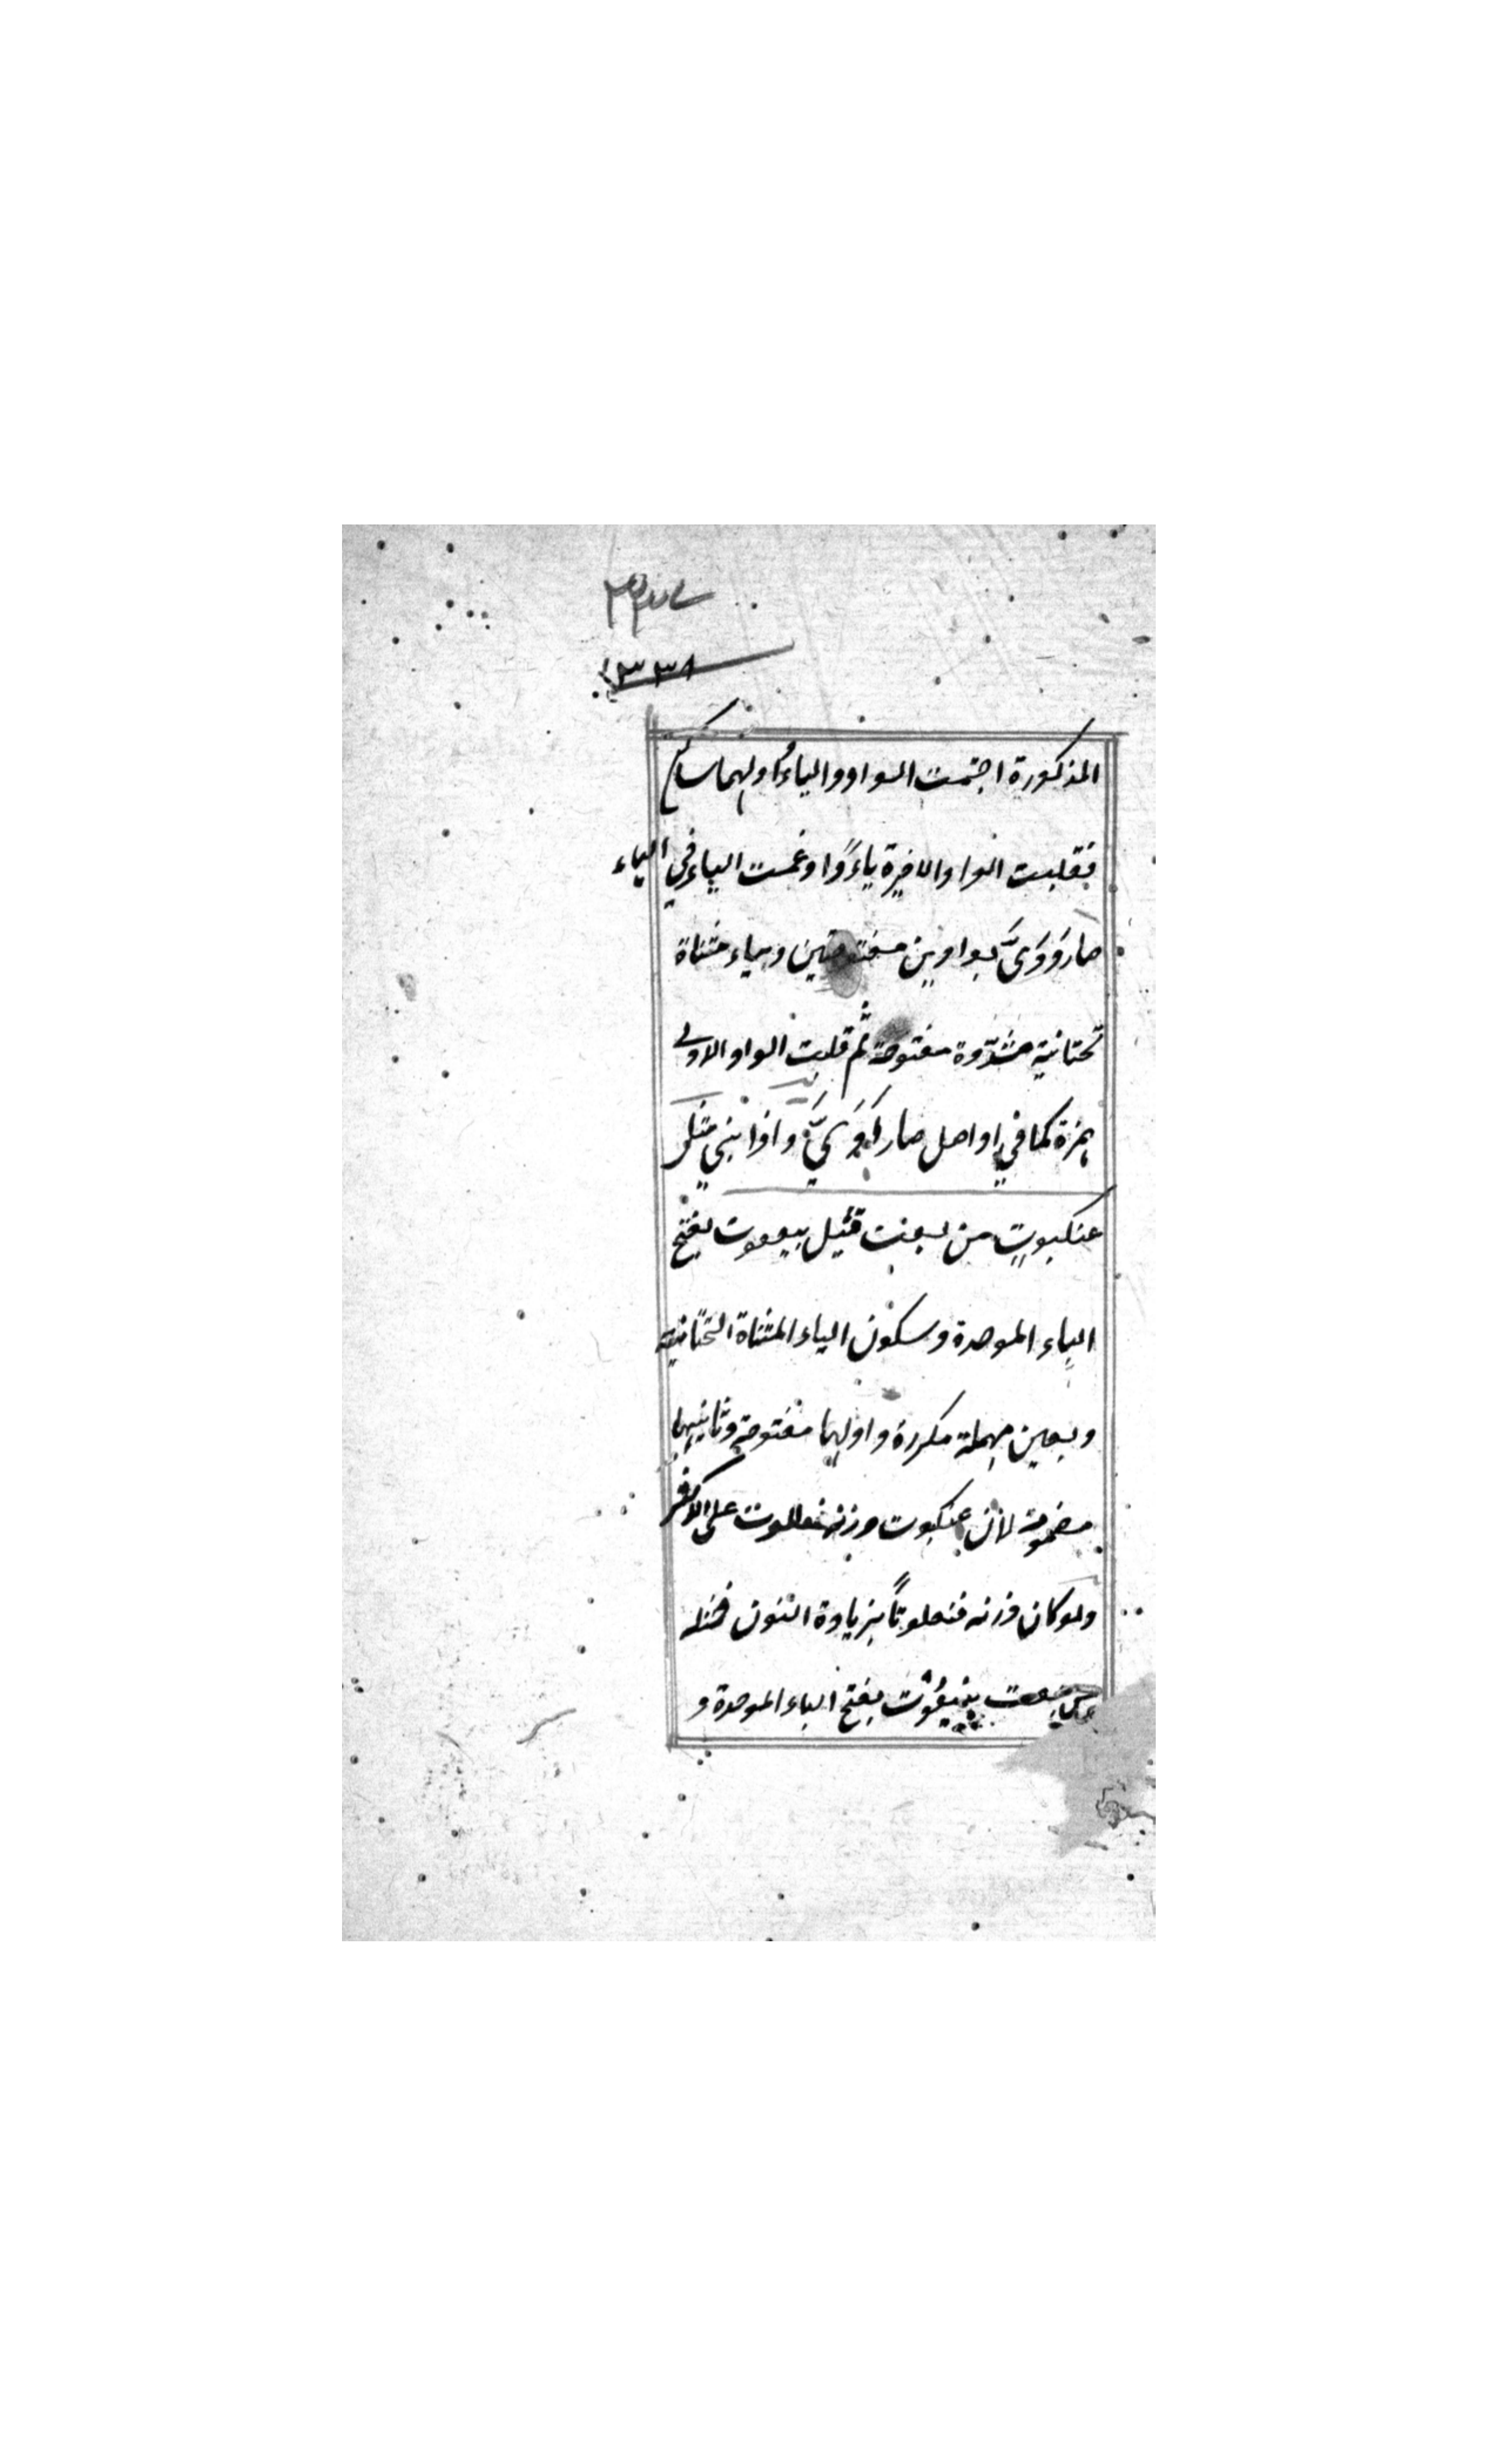 ١٣٣٨
المذكورة اجتمت الواو والياء واولهما ساكن
فقلبت الواو الاخيرة ياءً وادغمت الياء في الياء
صار وَوَىَّ بواوين مفتوحتين وبياء مثناة
تحتانية مشدّدة مفتوحة ثم قلبت الواو الاولى
همزة كما في اواصل صار اَوَىَّ واذا بني مثل
عنكبوت من بعت قيل بيععوت بفتح
الباء الموحدة وسكون الياء المثناة التحتانية
وبعين مهملة مكررة واولهما مفتوحة وثانيهما
مضمومة لان عنكبوت وزنه فعللوت على الاكثر
ولو كان وزنه فنعلوتاً بزيادة النون فمثله
من بعت بنيعوت بفتح الباء الموحدة و